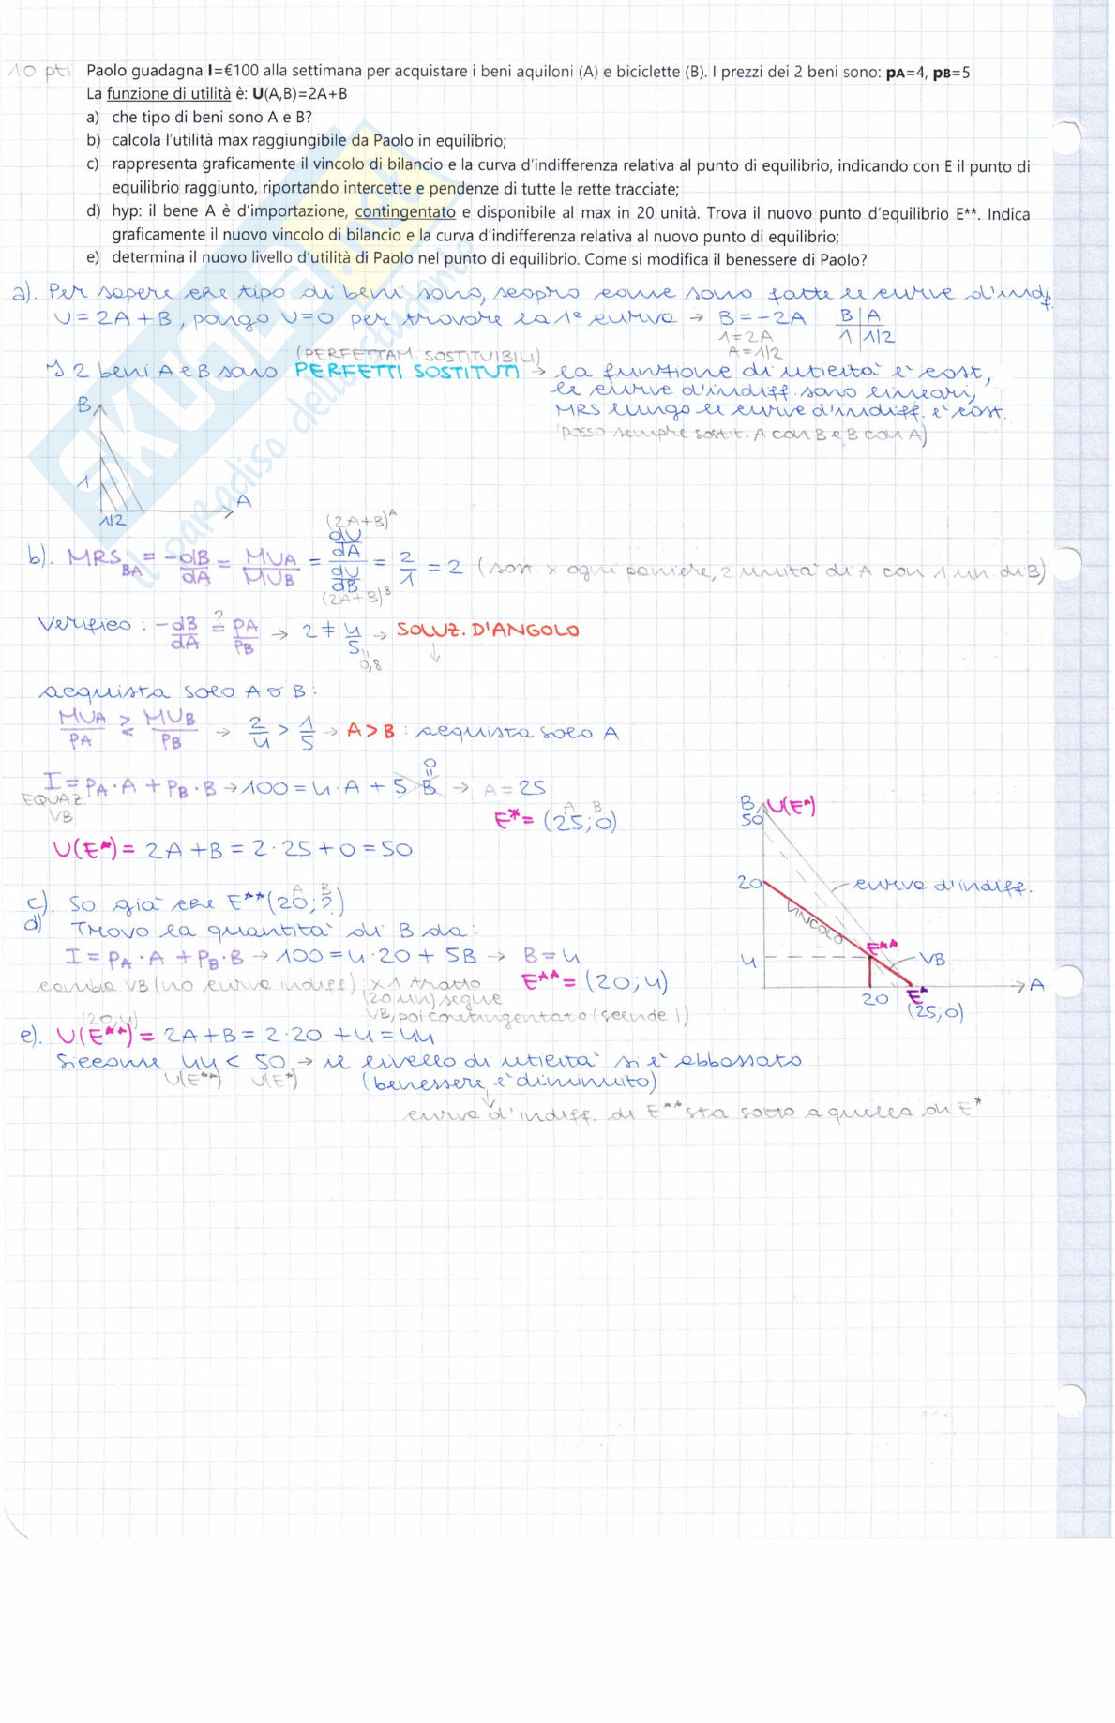 10 pti
Paolo guadagna I=€100 alla settimana per acquistare i beni aquiloni (A) e biciclette (B). I prezzi dei 2 beni sono: pA=4, pB=5
La funzione di utilità è: U(A,B)=2A+B
a) che tipo di beni sono A e B?
b) calcola l'utilità max raggiungibile da Paolo in equilibrio;
c) rappresenta graficamente il vincolo di bilancio e la curva d'indifferenza relativa al punto di equilibrio, indicando con E il punto di
equilibrio raggiunto, riportando intercette e pendenze di tutte le rette tracciate;
d) hyp: il bene A è d'importazione, contingentato e disponibile al max in 20 unità. Trova il nuovo punto d'equilibrio E**. Indica
graficamente il nuovo vincolo di bilancio e la curva d'indifferenza relativa al nuovo punto di equilibrio;
e) determina il nuovo livello d'utilità di Paolo nel punto di equilibrio. Come si modifica il benessere di Paolo?
a). Per sapere che tipo di beni sono, scopro come sono fatte le curve d'indif.
U = 2A + B, pongo U=0 per trovare la 1ª curva → B = -2A B | A
1 = 2A 1 | 1/2
A = 1/2
(PERFETTAM. SOSTITUIBILI)
I 2 beni A e B sono PERFETTI SOSTITUTI → la funzione di utilità è cost,
le curve d'indiff. sono lineari,
MRS lungo le curve d'indiff. è cost.
(posso sempre sostit. A con B e B con A)
B
1
1/2
A
(2A+B)ᴬ
b). MRS BA = -dB/dA = MUA/MUB = dU/dA / dU/dB = 2/1 = 2 (sost x ogni paniere, 2 unità di A con 1 un di B)
(2A+B)ᴮ
Verifico: -dB/dA =? PA/PB → 2 ≠ 4/5 → SOLUZ. D'ANGOLO
0,8
acquista solo A o B:
MUA/PA ≷ MUB/PB → 2/4 > 1/5 → A>B : acquista solo A
I = PA·A + PB·B → 100 = 4·A + 5·B → A = 25
0
EQUAZ.
VB
E* = (25;0)
A B
U(E*) = 2A + B = 2·25 + 0 = 50
B U(E*)
50
20
curva d'indiff.
VINCOLO
E**
4
VB
20
E*
A
(25,0)
c). So già che E** (20;?)
A B
d) Trovo la quantità di B da:
I = PA·A + PB·B → 100 = 4·20 + 5B → B = 4
cambia VB (no curve indiff) x 1 tratto
E** = (20;4)
(20 un) segue
VB, poi contingentato (scende |)
(20,4)
e). U(E**) = 2A + B = 2·20 + 4 = 44
Siccome 44 < 50 → il livello di utilità si è abbassato
U(E**) U(E*) (benessere è diminuito)
curva d'indiff. di E** sta sotto a quella di E*
SKUOLA.net
il paradiso dello studente